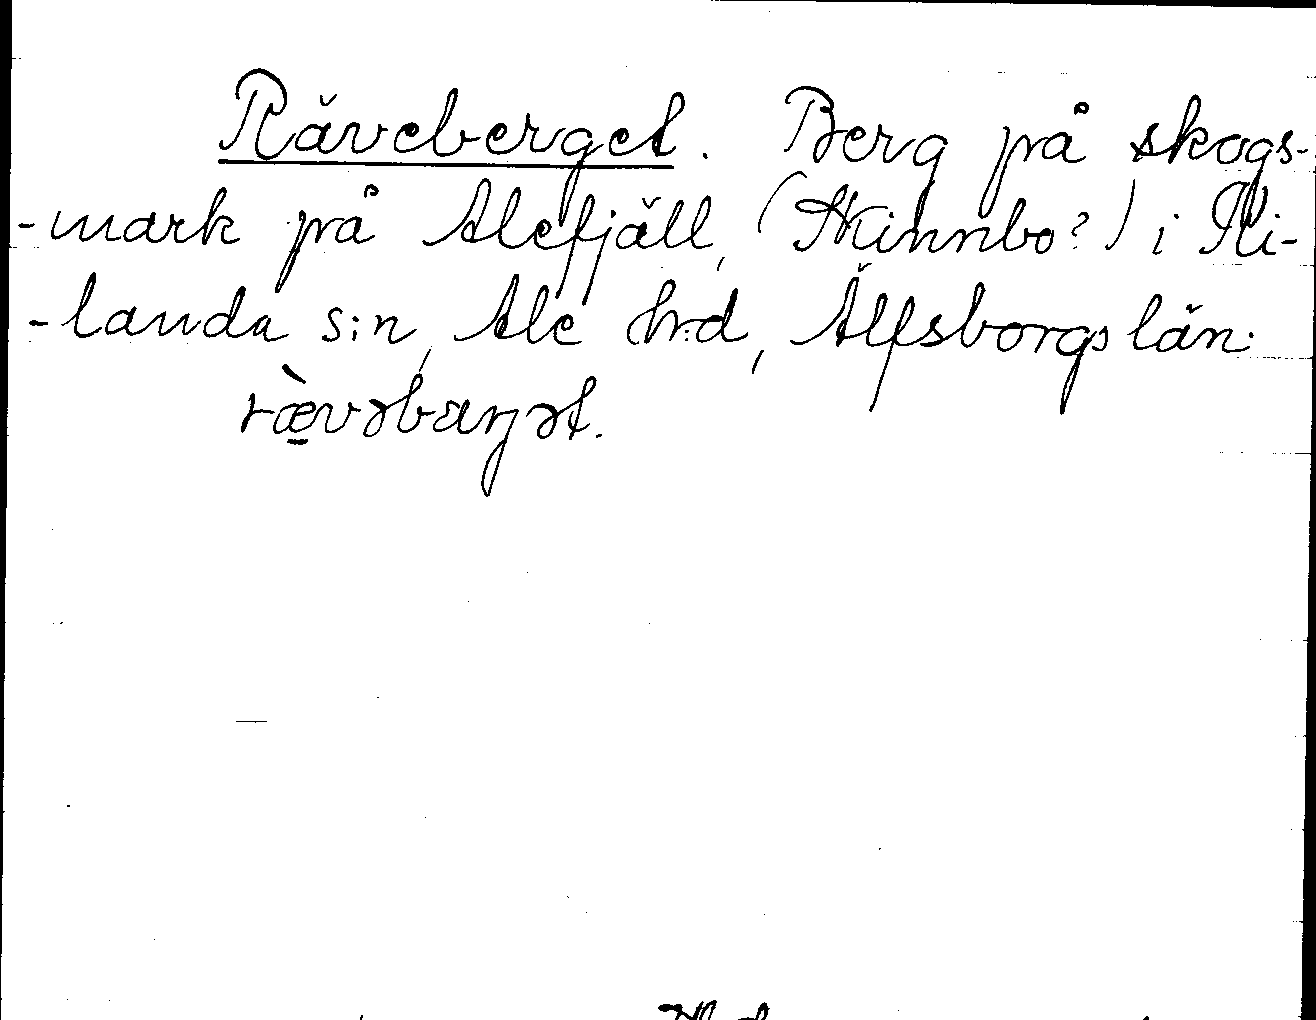 Räveberget. Berg på skogs-
-mark på Alefjäll, (Kinnbo?) i Ri-
-landa s:n, Ale hrd, Älfsborgs län.
ræ̀vəbærjət.